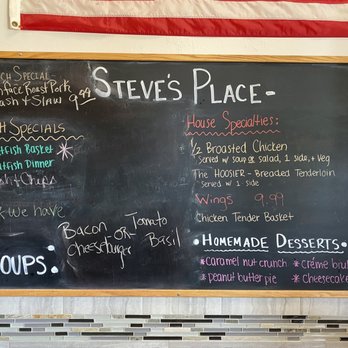 STEVE'S PLACE-
CH SPECIAL-
FACE ROAST PORK
ASH & SLAW 9.99
H SPECIALS
TFISH BASKET
TFISH DINNER
SH & CHIPS
WE HAVE
OUPS:
BACON OR TOMATO
CHEESEBURGER BASIL
HOUSE SPECIALTIES:
1/2 BROASTED CHICKEN
SERVED W/ SOUP OR SALAD, 1 SIDE, + VEG
THE HOOSIER - BREADED TENDERLOIN
SERVED W/ 1 SIDE
WINGS 9.99
CHICKEN TENDER BASKET
• HOMEMADE DESSERTS •
*CARAMEL NUT CRUNCH *CRÉME BRU
*PEANUT BUTTER PIE *CHEESECAKE